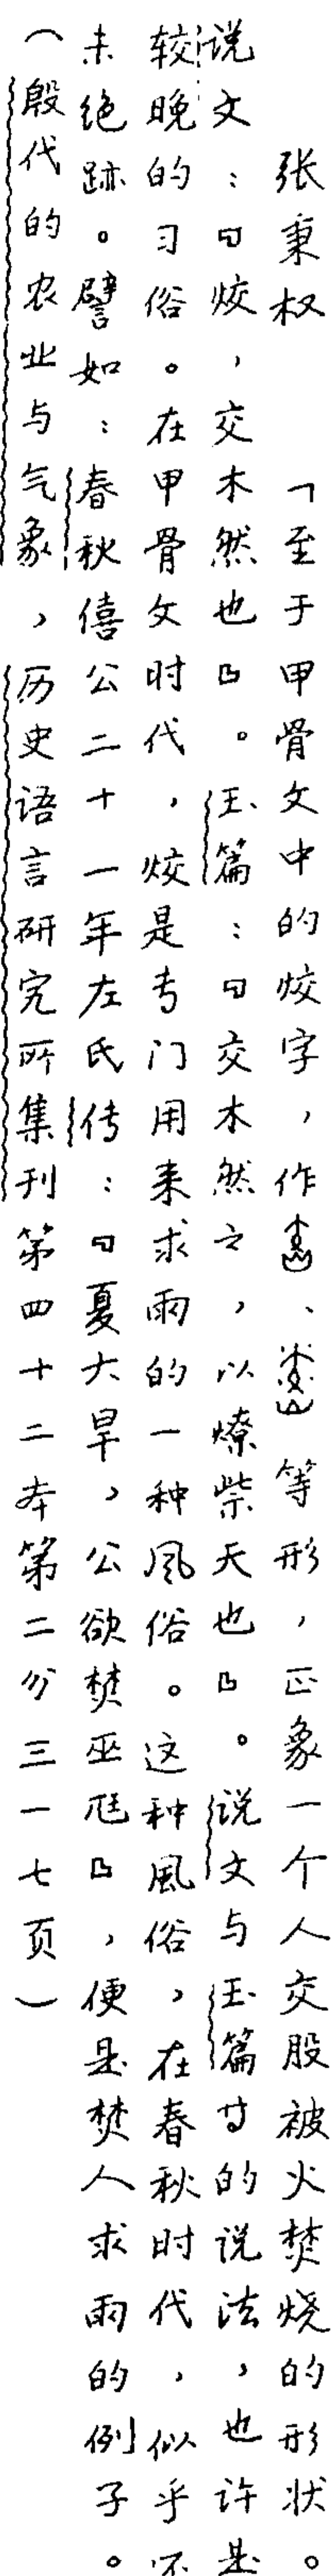 张秉权　「至于甲骨文中的烄字，作、等形，正象一个人交股被火焚烧的形状。
说文：『烄，交木然也』。玉篇：『交木然之，以燎柴天也』。说文与玉篇的说法，也许是
较晚的习俗。在甲骨文时代，烄是专门用来求雨的一种风俗。这种風俗，在春秋时代，似乎还
未绝跡。譬如：春秋僖公二十一年左氏传：『夏大旱，公欲焚巫尪』，便是焚人求雨的例子。
（殷代的农业与气象，历史语言研究所集刊第四十二本第二分三一七页）